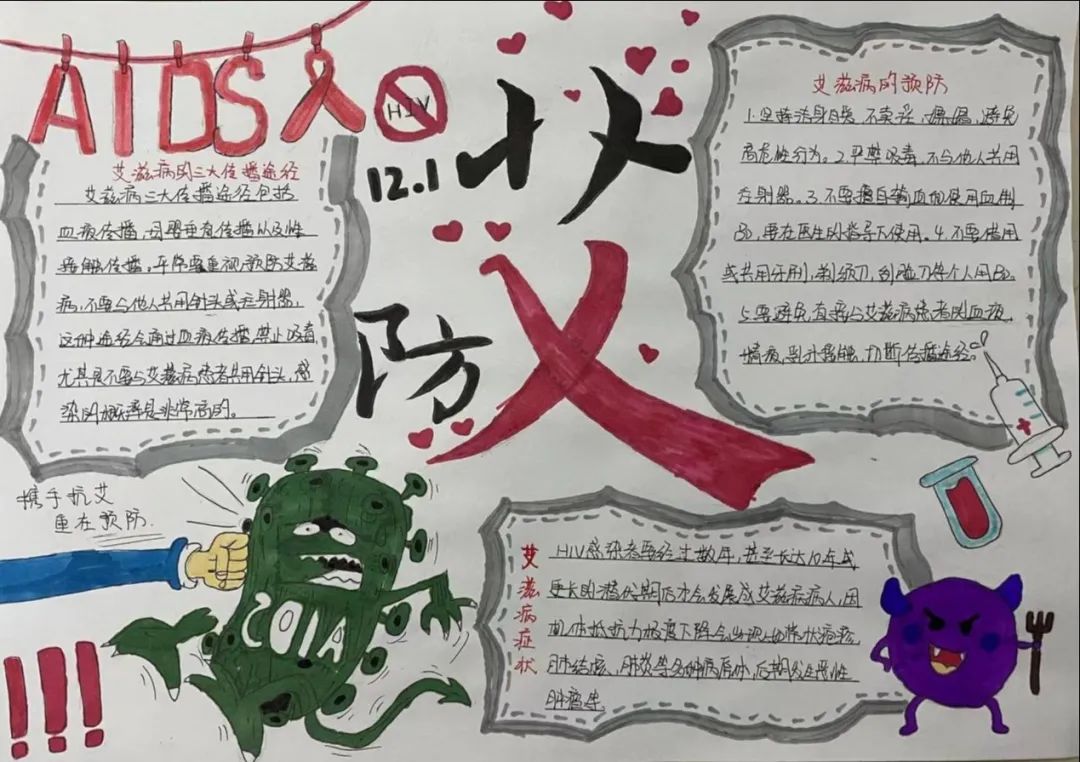 AIDS
HIV
12.1
防艾
艾滋病的三大传播途径
艾滋病三大传播途径包括
血液传播,母婴垂直传播以及性
接触传播。平常要重视预防艾滋
病,不要与他人共用针头或注射器,
这种途径会通过血液传播,禁止吸毒
尤其是不要与艾滋病患者共用针头,感
染的概率是非常高的。
艾滋病的预防
1.坚持洁身自爱,不卖淫、嫖娼,避免
高危性行为。2.严禁吸毒,不与他人共用
注射器。3.不要擅自输血和使用血制
品,要在医生的指导下使用。4.不要借用
或共用牙刷,剃须刀,刮脸刀等个人用品。
5.要避免直接与艾滋病患者的血液,
精液,乳汁接触,切断传播途径。
携手抗艾
重在预防.
!!!
艾滋病症状
HIV感染者要经过数年,甚至长达10年或
更长的潜伏期后才会发展成艾滋病病人,因
机体抵抗力极度下降会出现
肺结核、肺炎等多种病
后期发生恶性
肿瘤